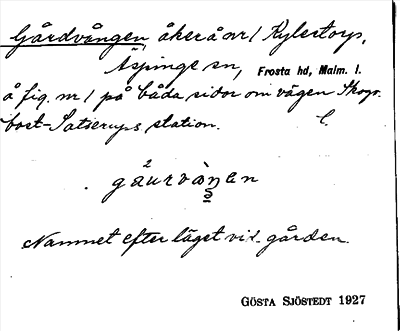 Gårdvången, åker å nr 1 Kylestorp,
Äspinge sn, Frosta hd, Malm. l.
å fig. nr 1 på båda sidor om vägen Skogs-
bost-Satserups station. l.
gåurvàŋen
Namnet efter läget vid gården.
GÖSTA SJÖSTEDT 1927